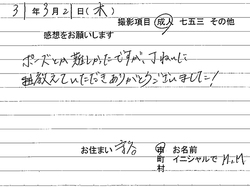 31年3月21日(木)
撮影項目 成人 七五三 その他
感想をお願いします
ポーズとか難しかったですが、ていねいに
教えていただきありがとうございました!
お住まい 市 お名前
町 イニシャルで M.M
村